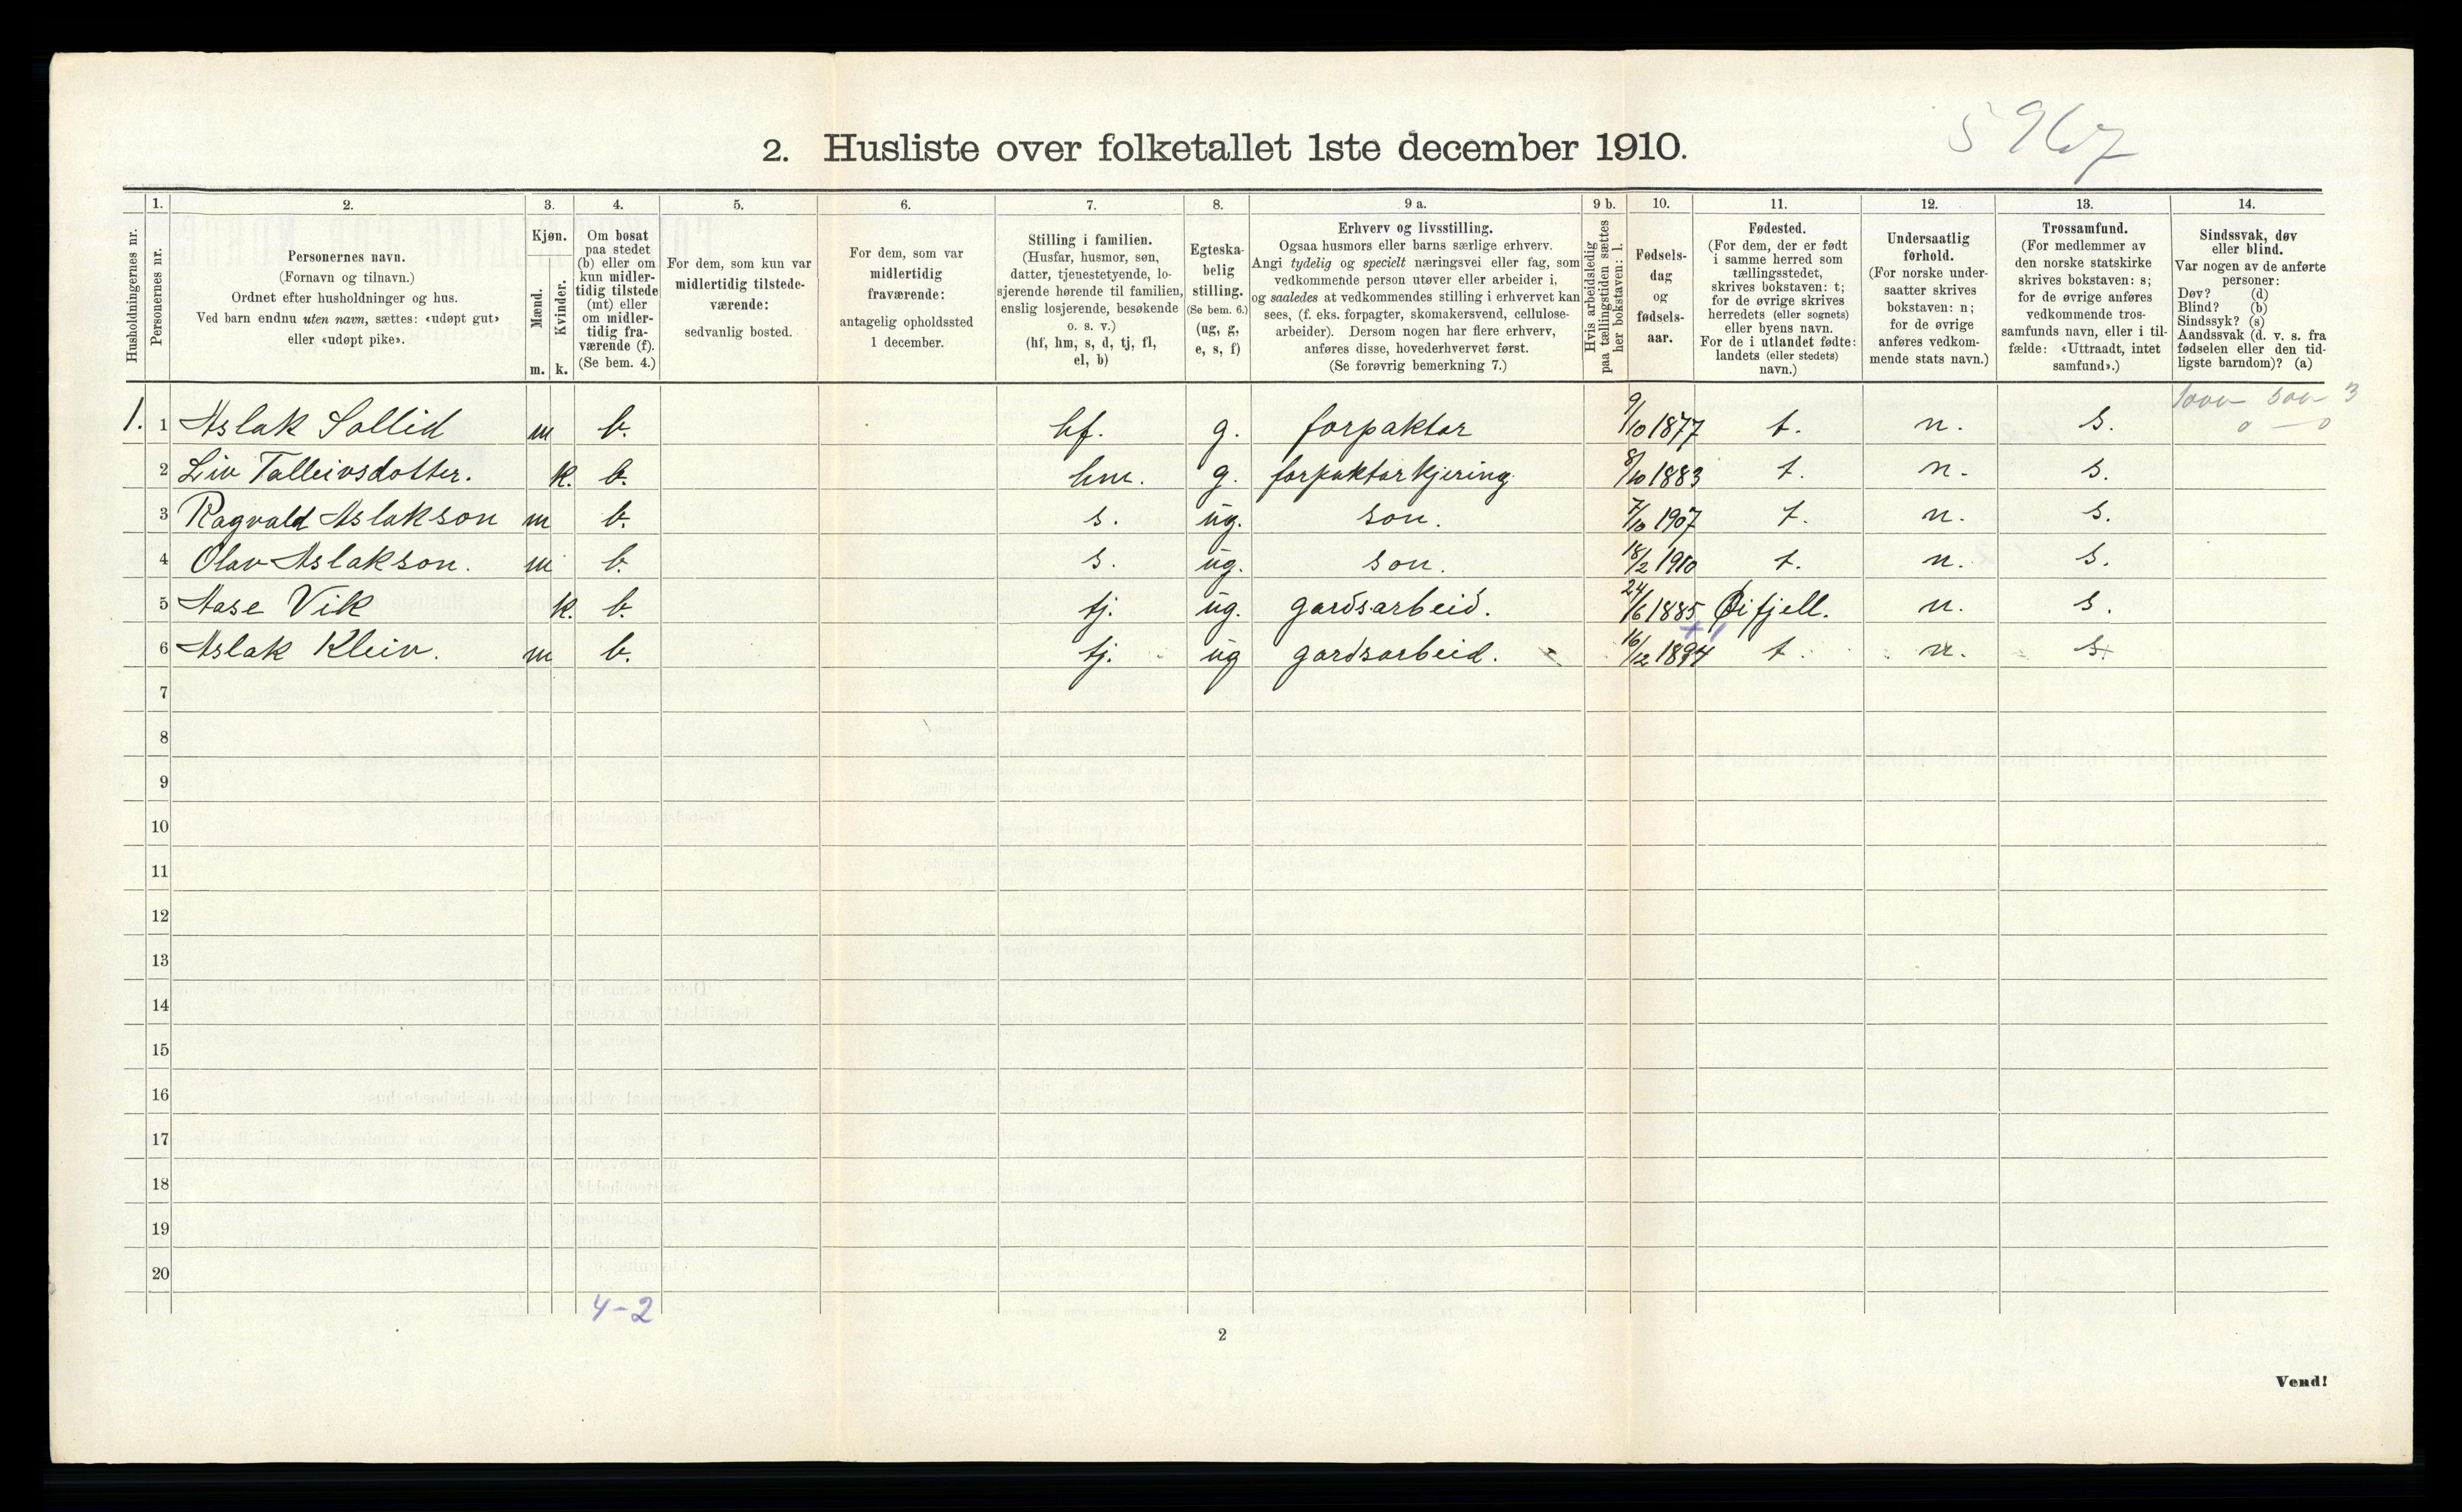 2. Husliste over folketallet 1ste december 1910.
Husholdningernes nr.
1. Personernes nr.
2. Personernes navn.
(Fornavn og tilnavn.)
Ordnet efter husholdninger og hus.
Ved barn endnu uten navn, sættes: «udøpt gut»
eller «udøpt pike».
3. Kjøn.
Mænd. Kvinder.
m. k.
4. Om bosat
paa stedet
(b) eller om
kun midler-
tidig tilstede
(mt) eller
om midler-
tidig fra-
værende (f).
(Se bem. 4.)
5. For dem, som kun var
midlertidig tilstede-
værende:
sedvanlig bosted.
6. For dem, som var
midlertidig
fraværende:
antagelig opholdssted
1 december.
7. Stilling i familien.
(Husfar, husmor, søn,
datter, tjenestetyende, lo-
sjerende hørende til familien,
enslig losjerende, besøkende
o. s. v.)
(hf, hm, s, d, tj, fl,
el, b)
8. Egteska-
belig
stilling.
(Se bem. 6.)
(ug, g,
e, s, f)
9 a. Erhverv og livsstilling.
Ogsaa husmors eller barns særlige erhverv.
Angi tydelig og specielt næringsvei eller fag, som
vedkommende person utøver eller arbeider i,
og saaledes at vedkommendes stilling i erhvervet kan
sees, (f. eks. forpagter, skomakersvend, cellulose-
arbeider). Dersom nogen har flere erhverv,
anføres disse, hovederhvervet først.
(Se forøvrig bemerkning 7.)
9 b. Hvis arbeidsledig
paa tællingstiden sættes
her bokstaven: l.
10. Fødsels-
dag
og
fødsels-
aar.
11. Fødested.
(For dem, der er født
i samme herred som
tællingsstedet,
skrives bokstaven: t;
for de øvrige skrives
herredets (eller sognets)
eller byens navn.
For de i utlandet fødte:
landets (eller stedets)
navn.)
12. Undersaatlig
forhold.
(For norske under-
saatter skrives
bokstaven: n;
for de øvrige
anføres vedkom-
mende stats navn.)
13. Trossamfund.
(For medlemmer av
den norske statskirke
skrives bokstaven: s;
for de øvrige anføres
vedkommende tros-
samfunds navn, eller i til-
fælde: «Uttraadt, intet
samfund».)
14. Sindssvak, døv
eller blind.
Var nogen av de anførte
personer:
Døv? (d)
Blind? (b)
Sindssyk? (s)
Aandssvak (d. v. s. fra
fødselen eller den tid-
ligste barndom)? (a)
1. 1 Aslak Sollid m b. hf. g. forpaktar 9/10 1877 t. n. s.
2 Liv Talleivsdotter. k. b. hm. g. forpaktarkjering 8/10 1883 t. n. s.
3 Ragvald Aslakson m b. s. ug. son. 7/10 1907 t. n. s.
4 Olav Aslakson. m b. s. ug. son. 18/2 1910 t. n. s.
5 Aase Vik k. b. tj. ug. gardsarbeid. 24/6 1885 Øifjell. n. s.
6 Aslak Kleiv. m b. tj. ug gardsarbeid. 16/12 1894 t. n. s.
7
8
9
10
11
12
13
14
15
16
17
18
19
20
4-2
2
Vend!